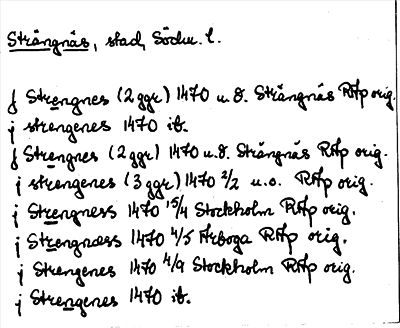 Strängnäs, stad, Söderm. l.
j Strengnes (2 ggr) 1470 u.d. Strängnäs RAp orig.
j strengenes 1470 ib.
j Strengnes (2 ggr) 1470 u.d. Strängnäs RAp orig.
j strengenes (3 ggr) 1470 2/2 u.o. RAp orig.
j Strengness 1470 15/4 Stockholm RAp orig.
j Strengnæss 1470 4/5 Arboga RAp orig.
j Strengenes 1470 4/9 Stockholm RAp orig.
j Strengenes 1470 ib.